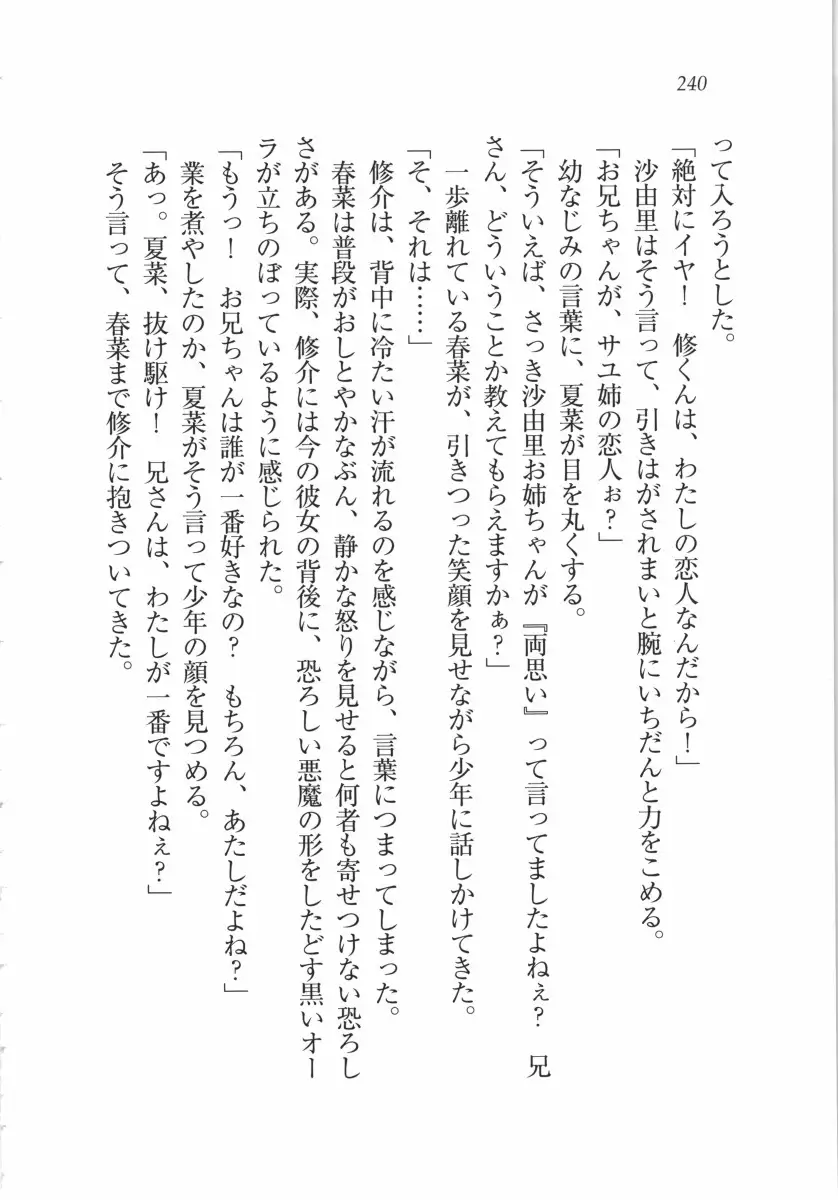 240
って入ろうとした。
「絶対にイヤ！　修くんは、わたしの恋人なんだから！」
沙由里はそう言って、引きはがされまいと腕にいちだんと力をこめる。
「お兄ちゃんが、サユ姉の恋人ぉ？」
幼なじみの言葉に、夏菜が目を丸くする。
「そういえば、さっき沙由里お姉ちゃんが『両思い』って言ってましたよねぇ？　兄
さん、どういうことか教えてもらえますかぁ？」
一歩離れている春菜が、引きつった笑顔を見せながら少年に話しかけてきた。
「そ、それは……」
修介は、背中に冷たい汗が流れるのを感じながら、言葉につまってしまった。
春菜は普段がおしとやかなぶん、静かな怒りを見せると何者も寄せつけない恐ろし
さがある。実際、修介には今の彼女の背後に、恐ろしい悪魔の形をしたどす黒いオー
ラが立ちのぼっているように感じられた。
「もうっ！　お兄ちゃんは誰が一番好きなの？　もちろん、あたしだよね？」
業を煮やしたのか、夏菜がそう言って少年の顔を見つめる。
「あっ。夏菜、抜け駆け！　兄さんは、わたしが一番ですよねぇ？」
そう言って、春菜まで修介に抱きついてきた。